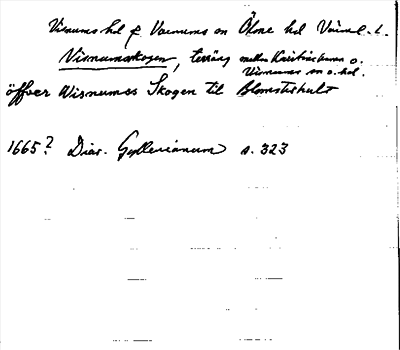 Visnums hd f Varnums sn Ölme hd Värml. l.
Visnumsskogen, terräng mellan Kristinehamn o.
Visnums sn o. hd.
öffver Wisnumss Skogen til Blomsterhult
1665? Diar. Gyllenianum s. 323